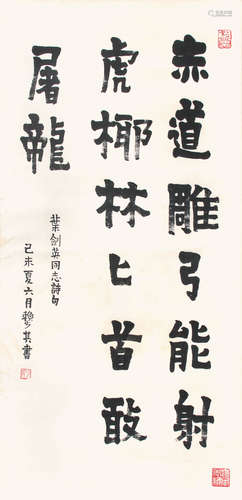 赤道雕弓能射
虎椰林匕首敢
屠龍
葉劍英同志詩句
己未夏六月賴少其書